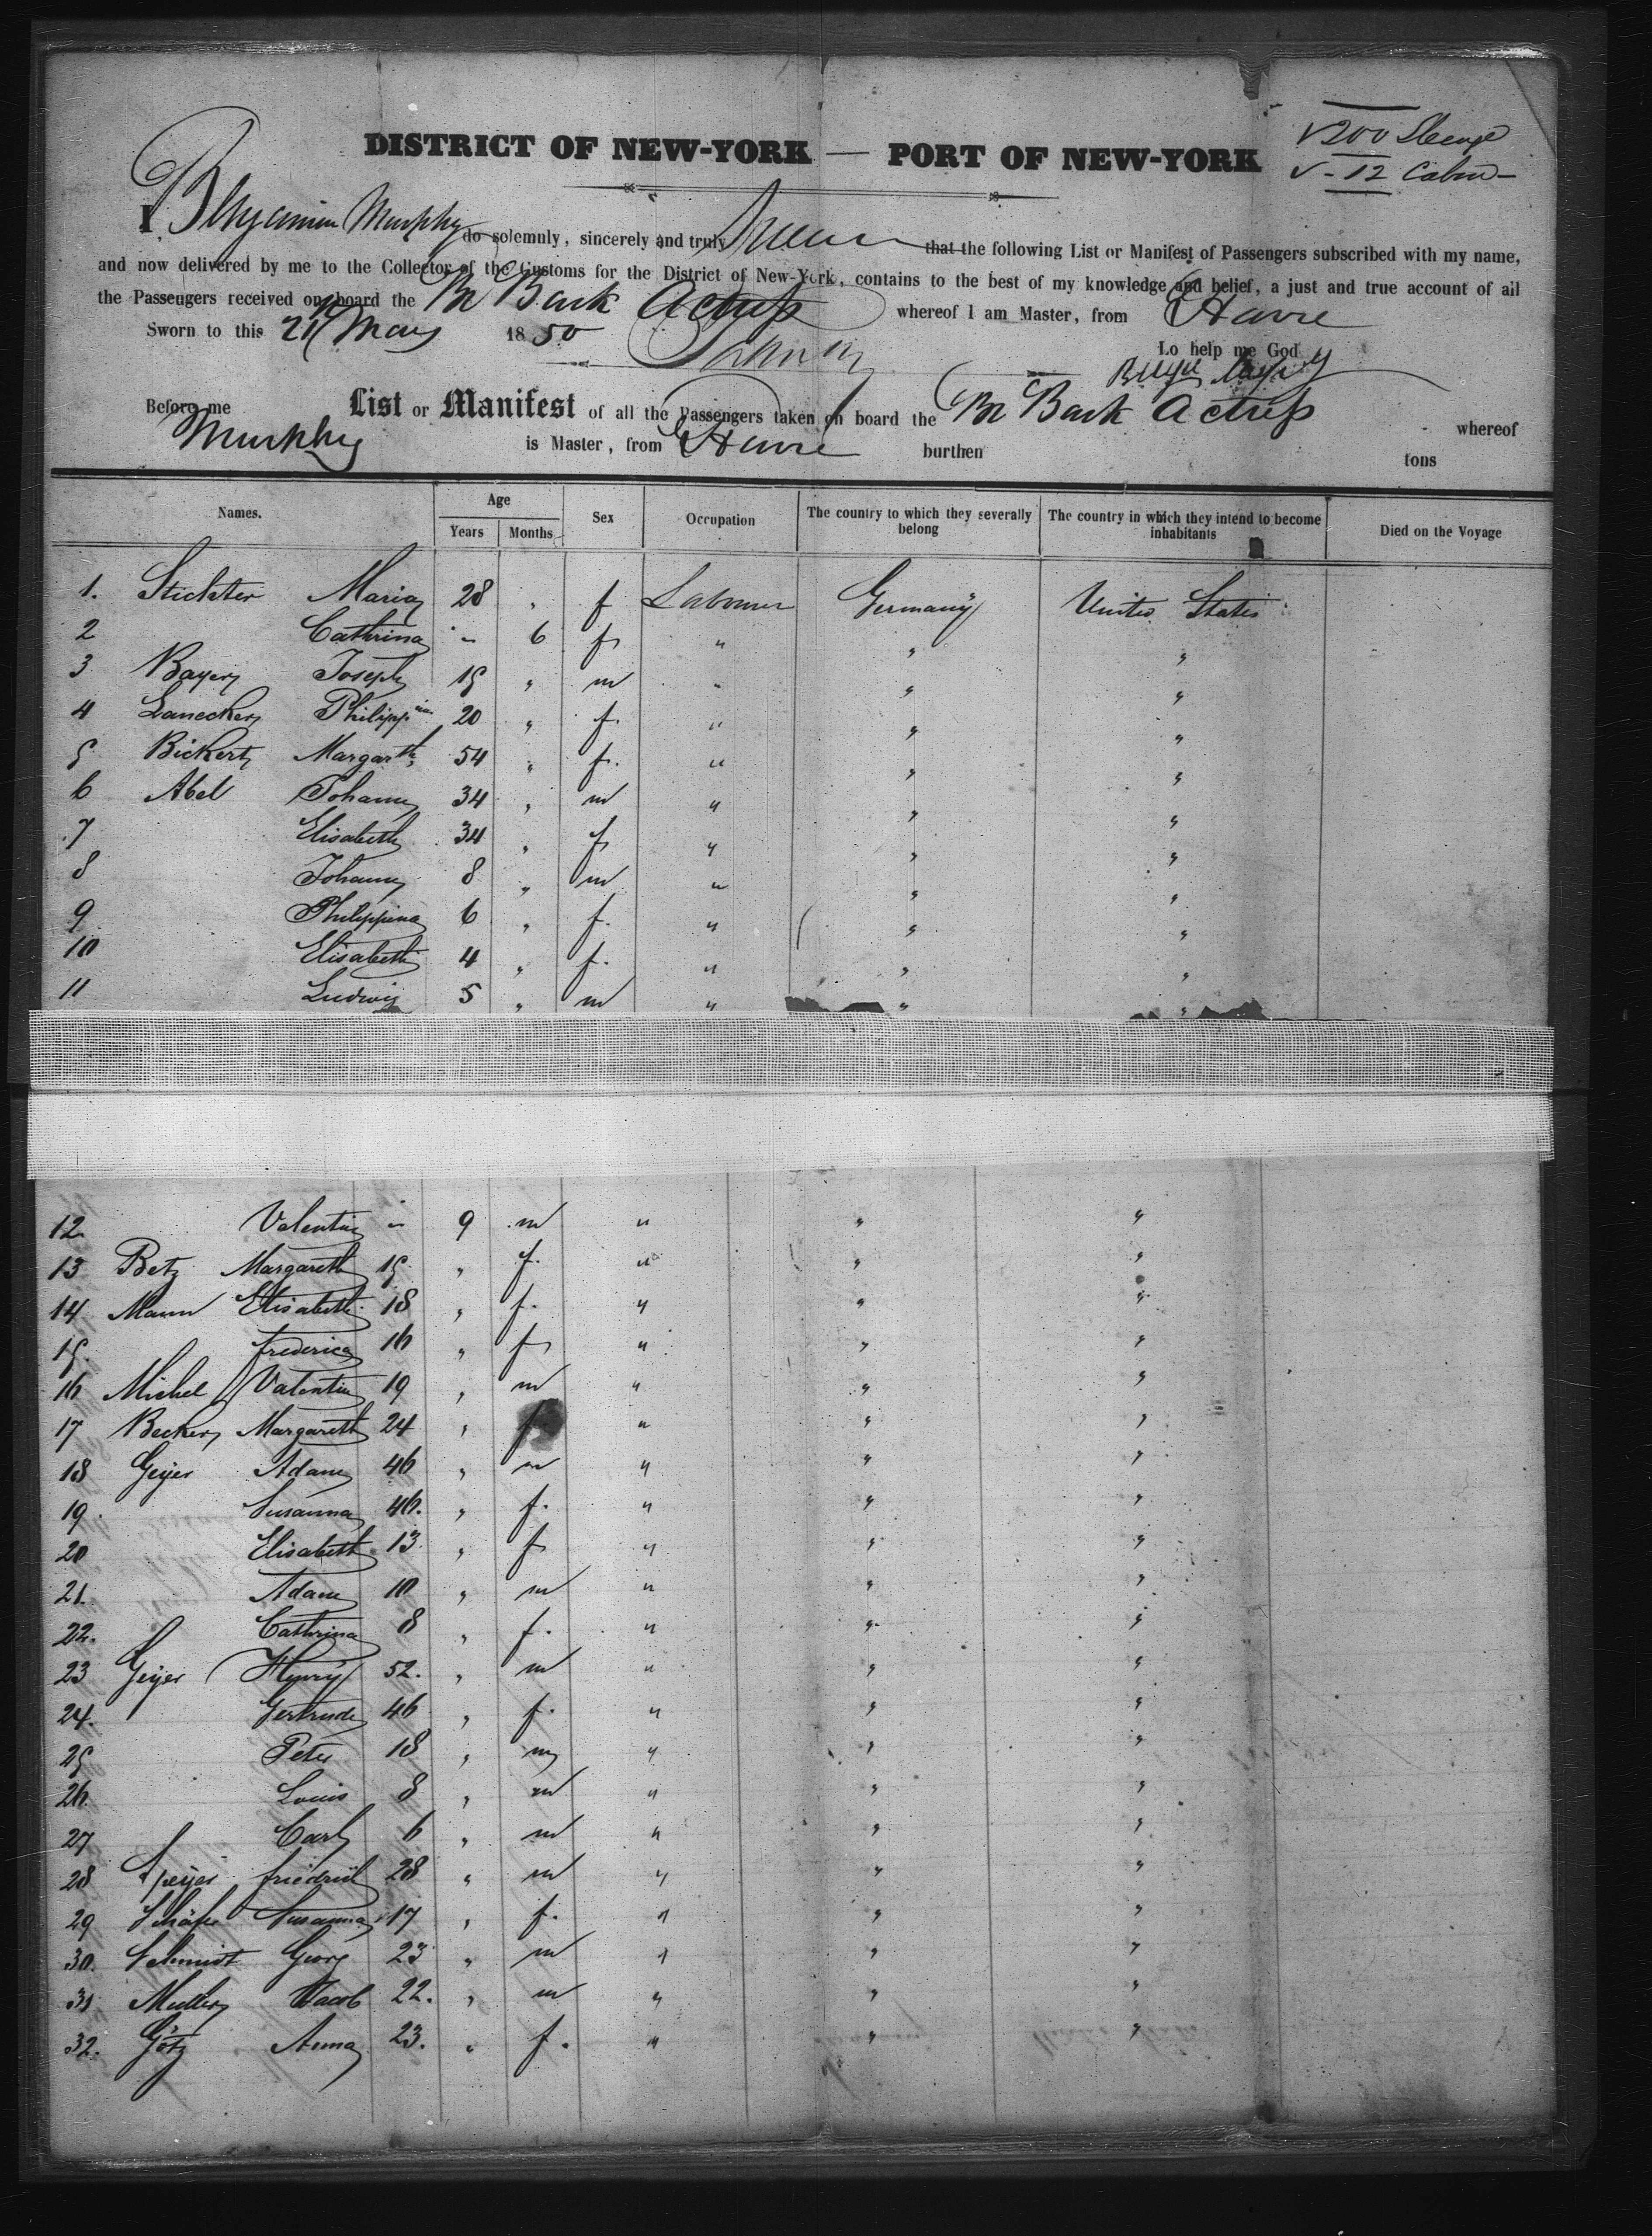 200 Steerage
12 Cabin
DISTRICT OF NEW-YORK — PORT OF NEW-YORK
I Benjamin Murphy do solemnly, sincerely and truly Swear that the following List or Manifest of Passengers subscribed with my name,
and now delivered by me to the Collector of the Customs for the District of New-York, contains to the best of my knowledge and belief, a just and true account of all
the Passengers received on board the Br Bark Actress whereof I am Master, from Havre
Sworn to this 21 May 1850
Lo help me God
Before me
List or Manifest of all the Passengers taken on board the Br Bark Actress whereof
Murphy is Master, from Havre burthen tons
Names. Age Years Months Sex Occupation The country to which they severally belong The country in which they intend to become inhabitants Died on the Voyage
1. Maria 28 " f Labourer Germany United States
2 Cathrina " 6 f " " "
3 Bayer Joseph 15 " m " " "
4 Lanecker Philippina 20 " f. " " "
5 Bickert Margarth 54 " f. " " "
6 Abel Johann 34 " m " " "
7 Elisabeth 34 " f " " "
8 Johann 8 " m " " "
9 Philippina 6 " f. " " "
10 Elisabeth 4 " f. " " "
11 Ludwig 5 " m " " "
12. Valentin " 9 m " " "
13 Betz Margareth 15 " f. " " "
14 Mann Elisabeth 18 " f. " " "
15. frederica 16 " f " " "
16 Michel Valentin 19 " m " " "
17 Becker Margareth 24 " f " " "
18 Geijer Adam 46 " m " " "
19. Susanna 46. " f. " " "
20 Elisabeth 13 " f " " "
21. Adam 10 " m " " "
22. Cathrina 8 " f. " " "
23 Geijer Henry 52. " m " " "
24. Gertrude 46 " f. " " "
25 Peter 18 " m " " "
26. Louis 8 " m " " "
27 Carl 6 " m " " "
28 Speijer friedrich 28 " m " " "
29 Schäfer Susanna 17 " f. " " "
30. Schmidt Georg 23 " m " " "
31 Muller Jacob 22. " m " " "
32. Götz Anna 23. " f. " " "